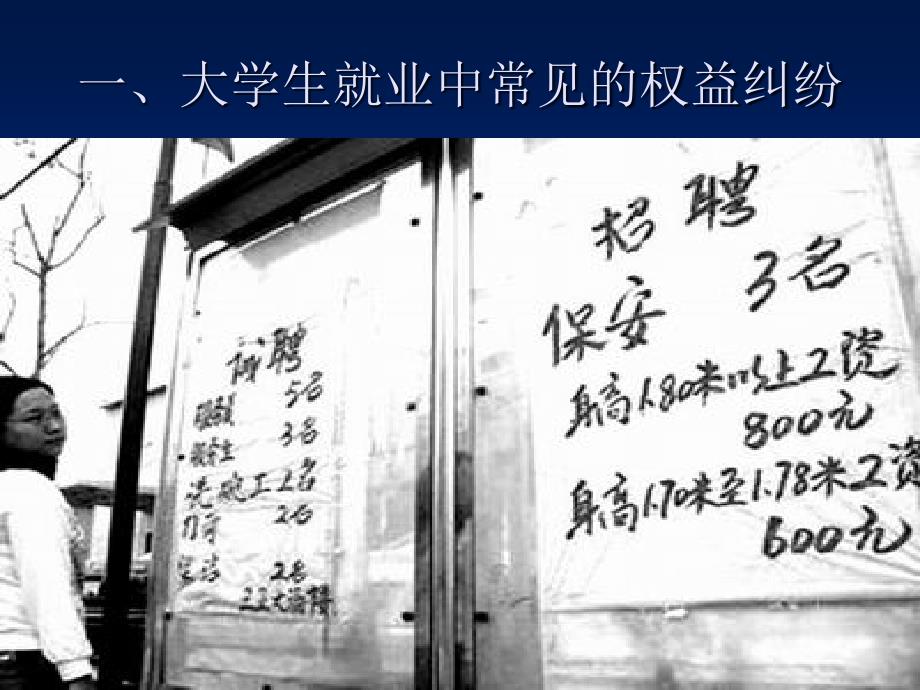 一、大学生就业中常见的权益纠纷
招聘
保安 3名
身高1.80米以上工资
800元
身高1.70米至1.78米工资
600元
聘
5名
3名
洗碗工2名
门守 2名
2名